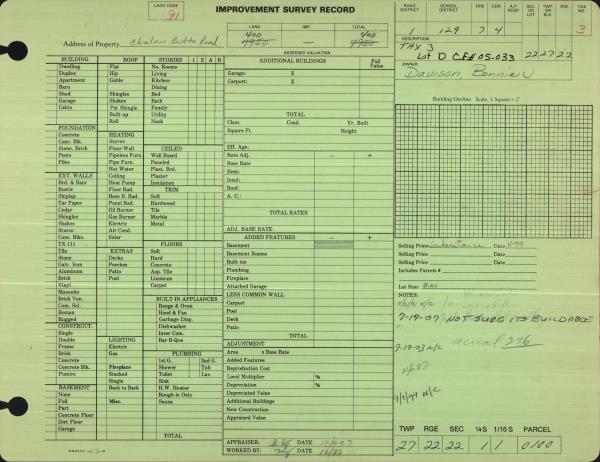 LAND CODE
91
IMPROVEMENT SURVEY RECORD
LAND IMP. TOTAL
400 400
9950 9950
ASSESSED VALUATION
Address of Property Butte Road
ROAD DISTRICT SCHOOL DISTRICT FIRE CEM. A.P. HOSP. SEC OR LOT TWP. OR BLK RGE. TAX NO.
1 129 7 4 3
DESCRIPTION
TAX 3
Lot D CF# 05-033 22 27 22
OWNER
Davison, Bonnie J
BUILDING ROOF STORIES 1 2 A B
Dwelling Flat No. Rooms
Duplex Hip Living
Apartment Gable Kitchen
Barn Dining
Shed Shingles Bed
Garage Shakes Bath
Cabin Pat Shingle Family
Built-up Utility
Roll Nook
FOUNDATION
Concrete HEATING
Conc. Blk. Stoves CEILED
Stone, Brick Floor-Wall Wall Board
Posts Pipeless Furn. Paneled
Piles Pipe Furn. Plast. Brd.
Hot Water Plaster
EXT. WALLS Ceiling Insulation
Brd. & Bats Heat Pump
Rustic Floor Rad. TRIM
Shiplap Base B. Rad. Soft
Tar Paper Panel Rad. Hardwood
Cedar Oil Burner Tile
Shingles Gas Burner Marble
Shakes Electric Metal
Stucco Air Cond.
Conc. Blks. Solar
TX-111 FLOORS
Tile EXTRAS Soft
Stone Decks Hard
Galv. Iron Porches Concrete
Aluminum Patio Asp. Tile
Brick Pool Linoleum
Vinyl Carpet
Masonite
Brick Ven. BUILT-IN APPLIANCES
Com. Sel. Range & Oven
Roman Hood & Fan
Rugged Garbage Disp.
CONSTRUCT. Dishwasher
Single Inter Com.
Double LIGHTING Bar-B-Que
Frame Electric
Brick Gas PLUMBING
Concrete 1st G. 2nd G.
Conc. Blk. Fireplace Shower Tub
Pumice Stacked Toilet Lav.
Single Sink
BASEMENT Back to Back H.W. Heater
None Rough-in Only
Full Misc. Sauna
Part
Concrete Floor
Dirt Floor
Garage
TOTAL
ADDITIONAL BUILDINGS Full Value
Garage: X
Carport: X
TOTAL
Class Cond. Yr. Built
Square Ft. Height
Eff. Age:
Rate Adj. - +
Base Rate
Heat:
Insul:
Roof:
A. C.:
TOTAL RATES
ADJ. BASE RATE
ADDED FEATURES - +
Basement
Basement Rooms
Built-ins
Plumbing
Fireplace
Attached Garage
LESS COMMON WALL
Carport
Pool
Deck
Patio
TOTAL
ADJUSTMENT
Area x Base Rate
Added Features
Reproduction Cost
Local Multiplier %
Depreciation %
Depreciated Value
Additional Buildings
New Construction
Appraised Value
APPRAISER: DATE
WORKED BY: DATE
Building Outline. Scale, 1 Square = 2'
Selling Price Inheritance Date 11-99
Selling Price Date
Selling Price Date
Includes Parcels #
Lot Size:
NOTES:
7-19-07 NOT SURE ITS BUILDABLE
9-17-03 N/C aerial 276
N/C
TWP RGE SEC ¼S 1/16 S PARCEL
27 22 22 1 1 0100